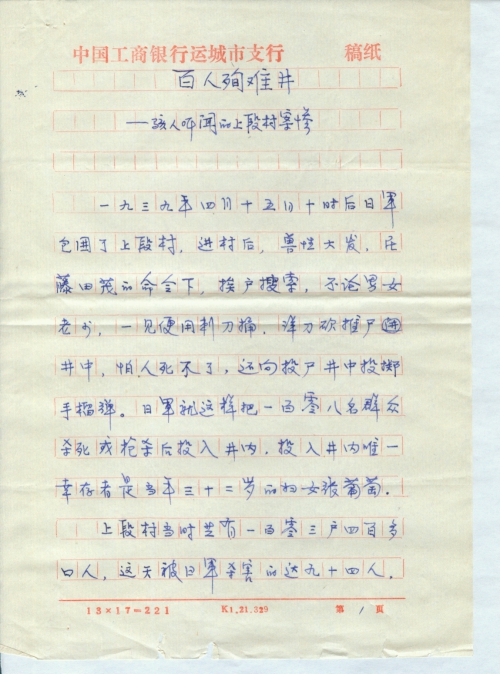 中国工商银行运城市支行 稿纸
百人殉难井
——骇人听闻的上段村案惨
一九三九年四月十五日十时后日军
包围了上段村，进村后，兽性大发，在
藤田茂的命令下，挨户搜索，不论男女
老少，一见便用刺刀捅，洋刀砍推尸
井中，怕人死不了，还向投尸井中投掷
手榴弹。日军就这样把一百零八名群众
杀死或枪杀后投入井内，投入井内唯一
幸存者是当年三十二岁的妇女张葡萄。
上段村当时共有一百零三户四百多
口人，这天被日军杀害的达九十四人，
13×17=221 K1.21.329 第 1 页